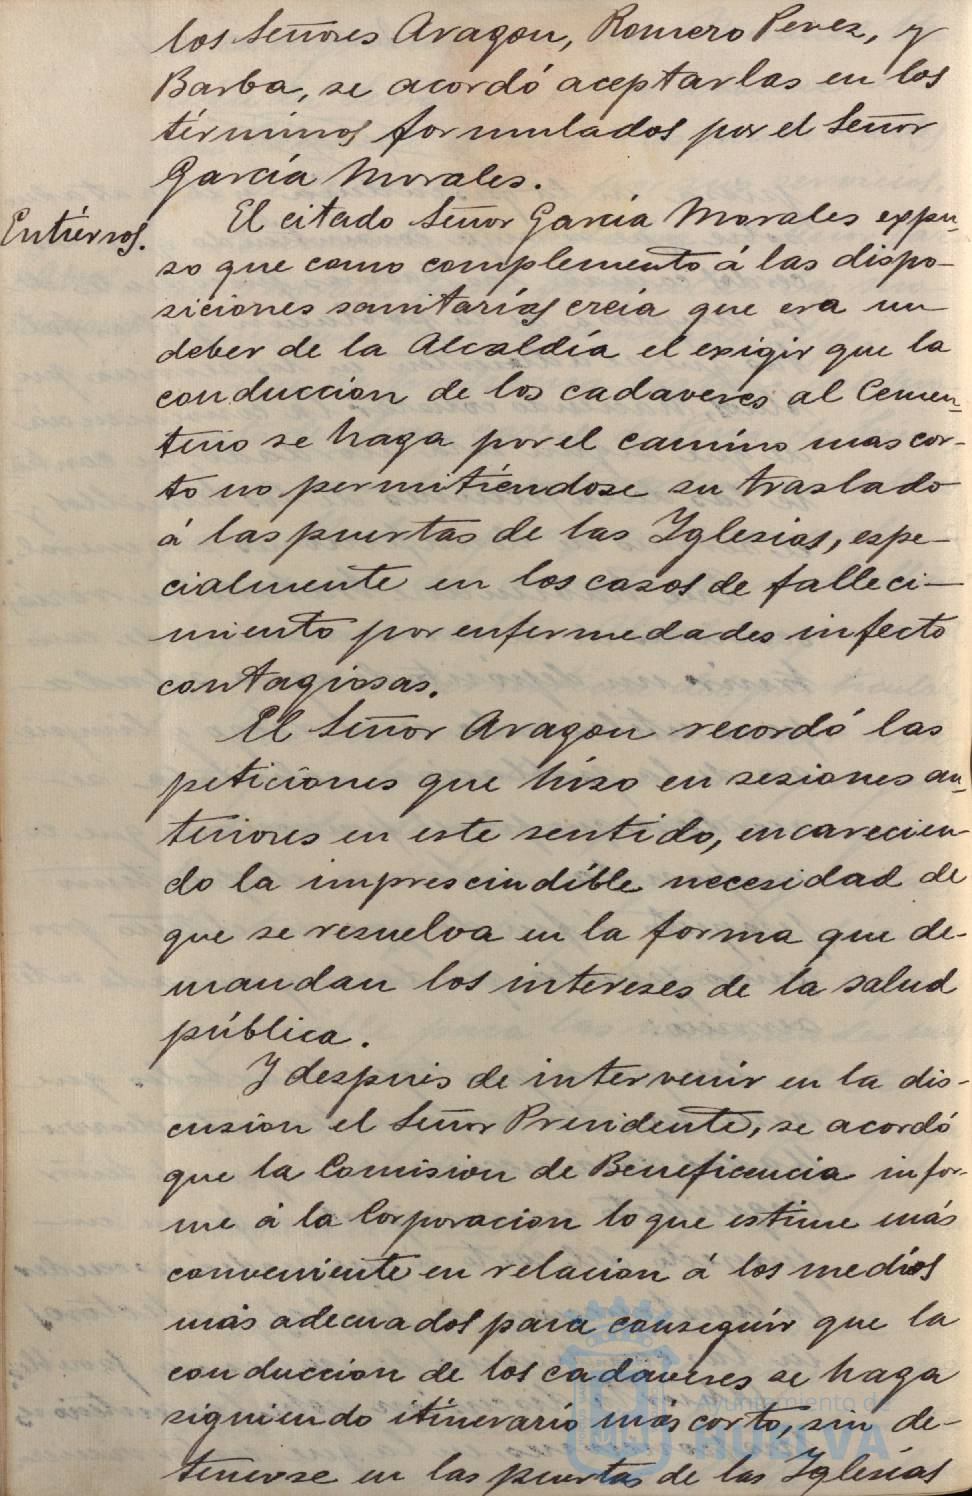 los Señores Aragon, Romero Perez, y
Barba, se acordó aceptarlas en los
términos formulados por el Señor
García Morales.
Entierros.
El citado Señor García Morales expu-
so que como complemento á las dispo-
siciones sanitarias creia que era un
deber de la Alcaldía el exigir que la
conduccion de los cadaveres al Cemen-
terio se haga por el camino mas cor-
to no permitiéndose su traslado
á las puertas de las Yglesias, espe-
cialmente en los casos de falleci-
miento por enfermedades infecto
contagiosas.
El Señor Aragon recordó las
peticiones que hizo en sesiones an-
teriores en este sentido, encarecien-
do la imprescindible necesidad de
que se resuelva en la forma que de-
mandan los intereses de la salud
pública.
Y despues de intervenir en la dis-
cusion el Señor Presidente, se acordó
que la Comision de Beneficencia infor-
me á la Corporacion lo que estime más
conveniente en relacion á los medios
más adecuados para conseguir que la
conduccion de los cadaveres se haga
siguiendo itinerario más corto, sin de-
tenerse en las puertas de las Yglesias
Ayuntamiento de
HUELVA